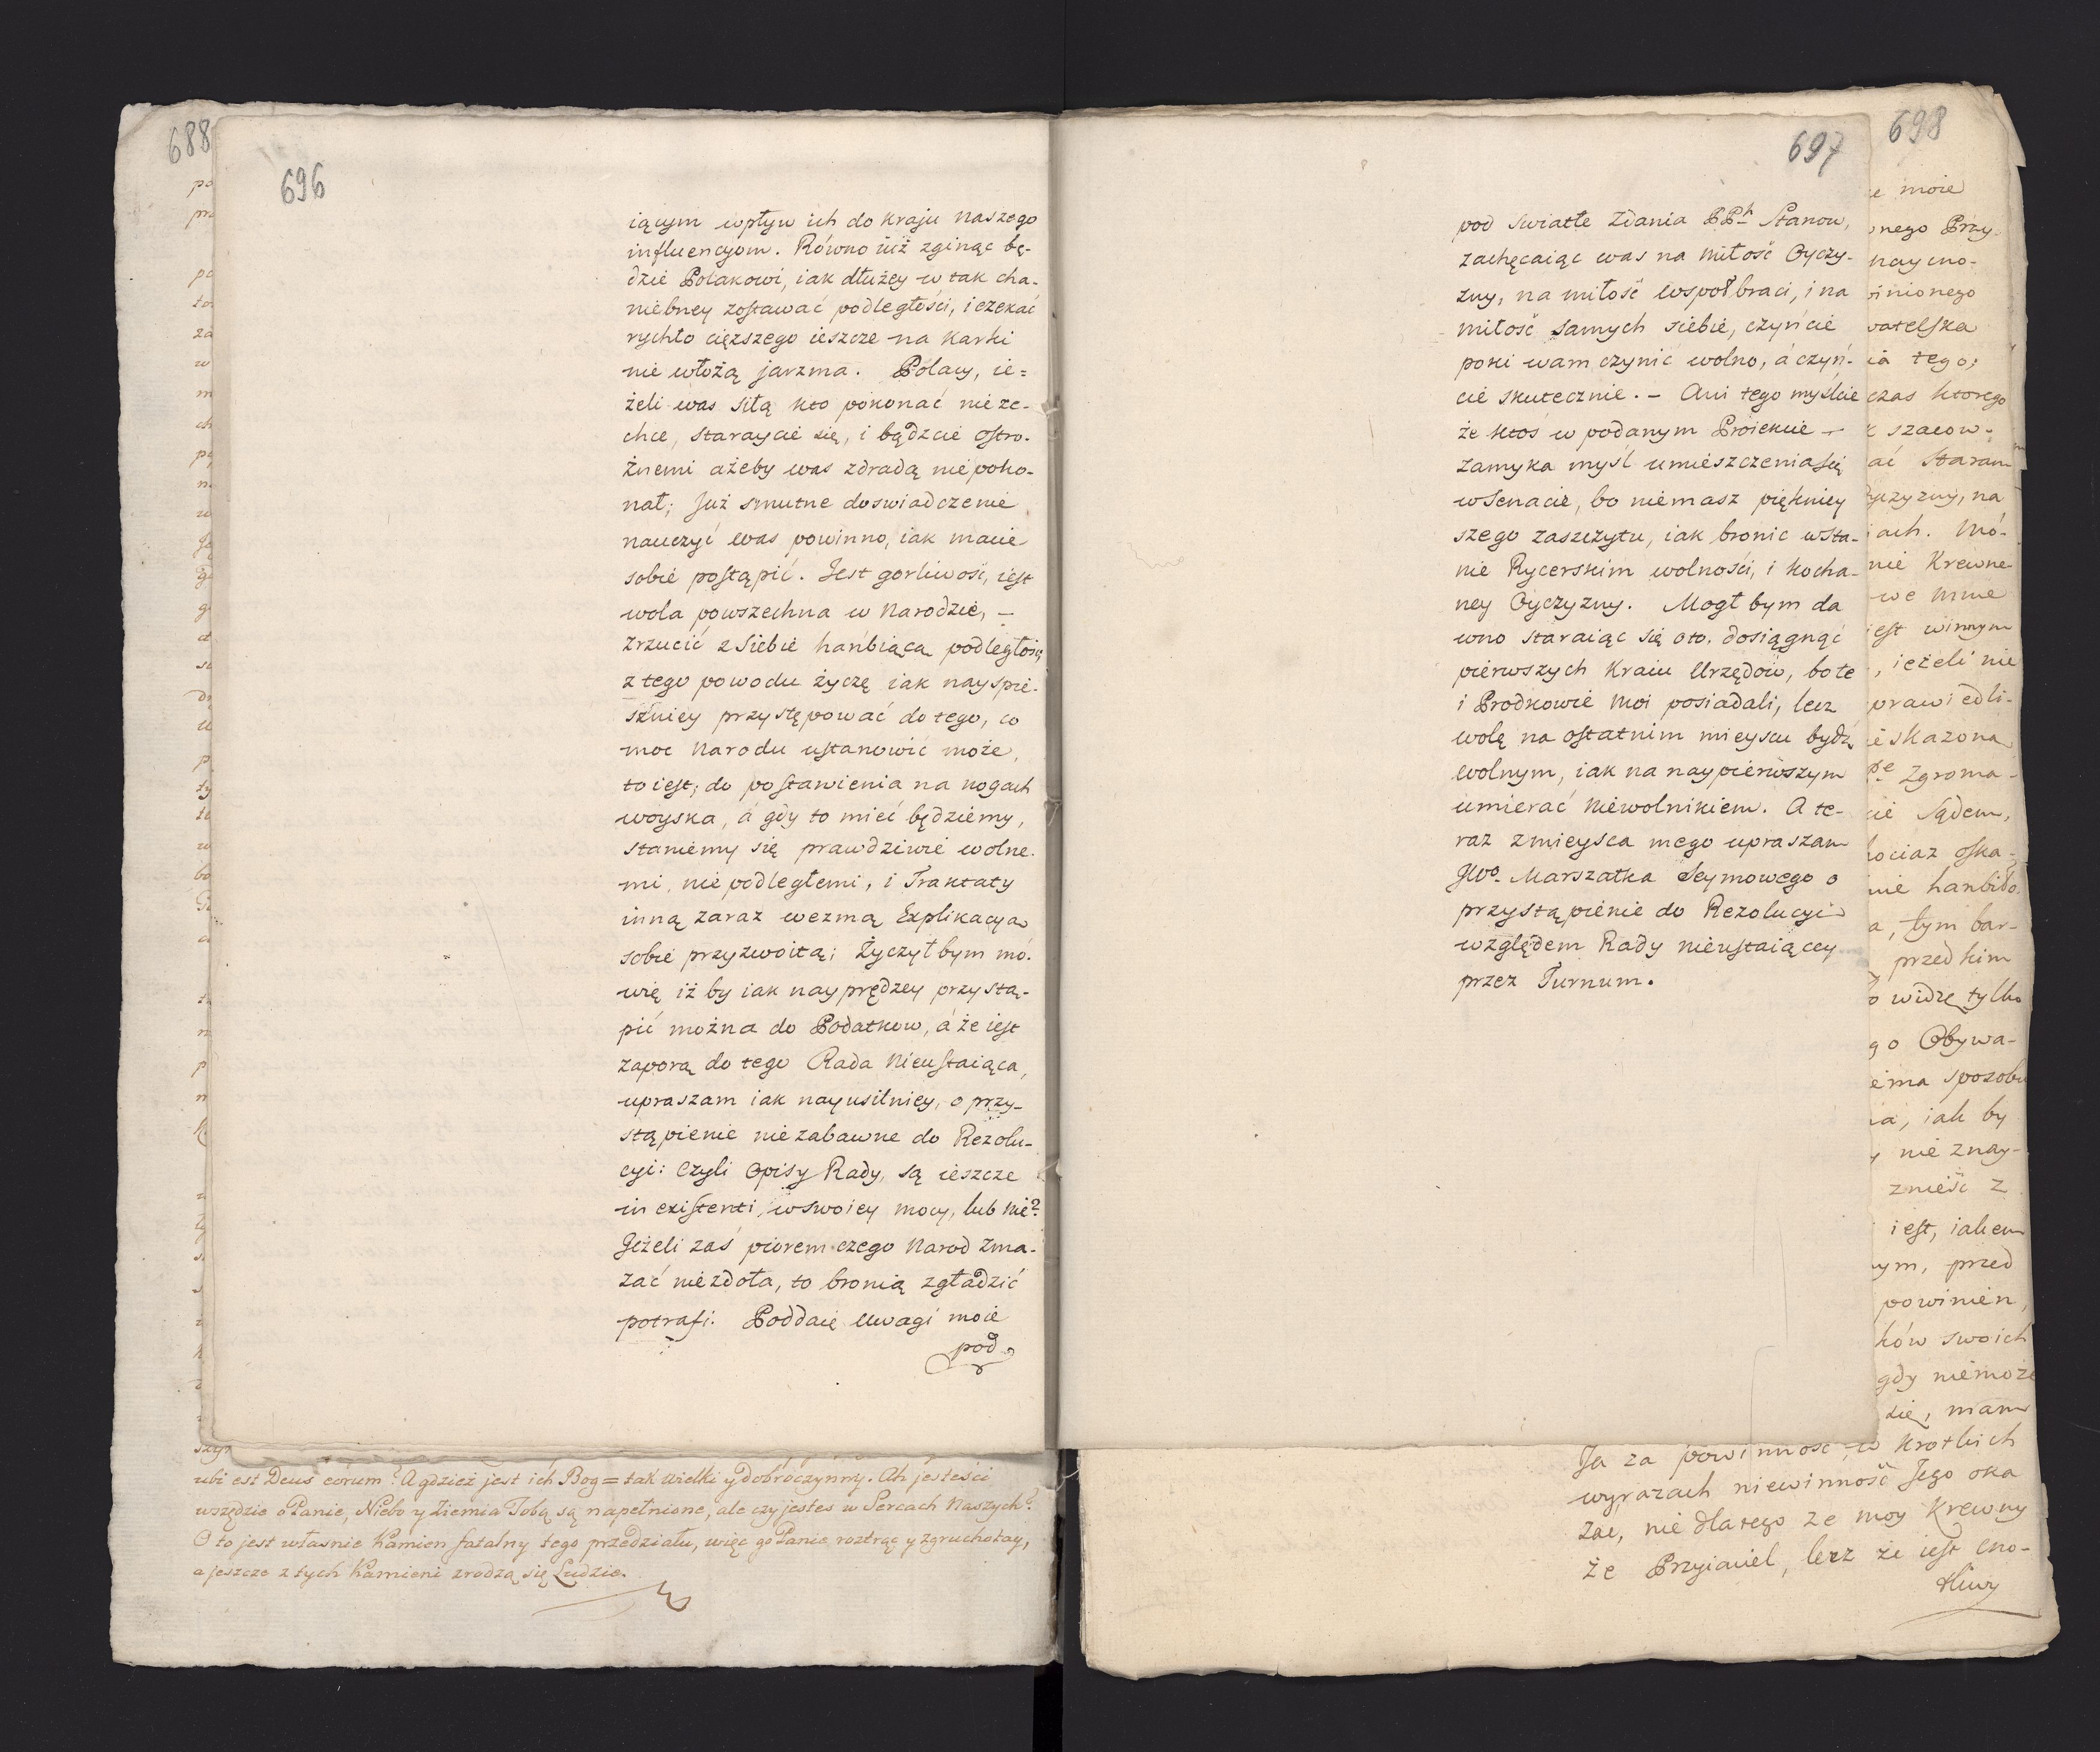 688
696
iącym wpływ ich do Kraju naszego
influencyom. Równo iuż zginąć bę-
dzie Polakowi, iak dłużey w tak cha-
niebney zostawać podległości, i czekać
rychło cięższego ieszcze na Karki
nie włożą jarzma. Polacy, ie=
żeli was siłą kto pokonać nieze-
chce, staraycie się, i bądzcie ostro-
żnemi ażeby was zdradą niepoko-
nał; Już smutne doswiadczenie
nauczyć was powinno, iak macie
sobie postąpić. Jest gorliwość, iest
wola powszechna w Narodzie, –
zrzucić z Siebie hańbiącą podległość
z tego powodu życzę iak nayspie-
szniey przystępować do tego, co
moc Narodu ustanowić może,
to iest; do postawienia na nogach
woyska, á gdy to mieć będziemy,
staniemy się prawdziwie wolne-
mi, niepodległemi, i Traktaty
inną zaraz wezmą Explikacyą
sobie przyzwoitą; Życzył bym mó-
wię iż by iak nayprędzey przystą-
pić można do Podatkow, á że iest
zaporą do tego Rada Nieustaiąca,
upraszam iak nayusilniey, o przy-
stąpienie niezabawne do Rezolu-
cyi: Czyli Opisy Rady, są ieszcze
in existenti, w swoiey mocy, lub nie?
Jeżeli zaś piorem czego Narod zma-
zać niezdoła, to bronią zgładzić
potrafi. Poddaię Uwagi moie
pod
ubi est Deus eorum? A gdzież jest ich Bog = tak wielki y dobroczynny. Ah jesteści
wszędzie o Panie, Niebo y Ziemia Tobą są napełnione, ale czy jestes w Sercach Naszych?
O to jest własnie Kamien fatalny tego przedziału, więc go Panie roztrąc y zgruchotay,
a jeszcze z tych Kamieni zrodzą się Ludzie.
697
pod swiatłe Zdania PPh Stanow,
zachęcaiąc was na miłość Oyczy-
zny, na miłość wspoł braci, i na
miłość samych siebie, czyńcie
poki wam czynić wolno, á czyń-
cie skutecznie. – Ani tego myślcie
że ktoś w podanym Proiekcie –
zamyka myśl umieszczenia się
w Senacie, bo niemasz piękniey
szego zaszczytu, iak bronic w sta-
nie Rycerskim wolności, i kocha-
ney Oyczyzny. Mogł bym da
wno staraiąc się oto. dosiągnąć
pierwszych Kraiu Urzędów, bo te
i Przodkowie moi posiadali, lecz
wolę na ostatnim mieyscu bydź
wolnym, iak na naypierwszym
umierać niewolnikiem. A te-
raz z mieysca mego upraszam
JWo. Marszałka Seymowego o
przystąpienie do Rezolucyi
względem Rady nieustaiącey
przez Turnum.
698
e moie
nego Przy-
nay cno-
inionego
watelska
ia tego;
czas ktorego
k szacow-
ać staram
yczyzny, na
iach. Mó-
nie Krewne-
we mnie
iest winnym
, ieżeli nie
prawiedli-
ieskazona
Zgroma-
cie Sądem,
hociaz oska-
nie hanbiło,
a, tym bar-
przed kim
o widzę tylko
go Obywa-
ma sposobu
ia, iak by
y nie znay-
znieść z
iest, iakem
ym, przed
powinien,
ków swoich
gdy niemoże
się, mam
Ja za powinnosc w krotkich
wyrazach niewinność Jego oka
zac, nie dlatego ze moy Krewny
że Przyiaciel, lecz że iest cno-
tliwy